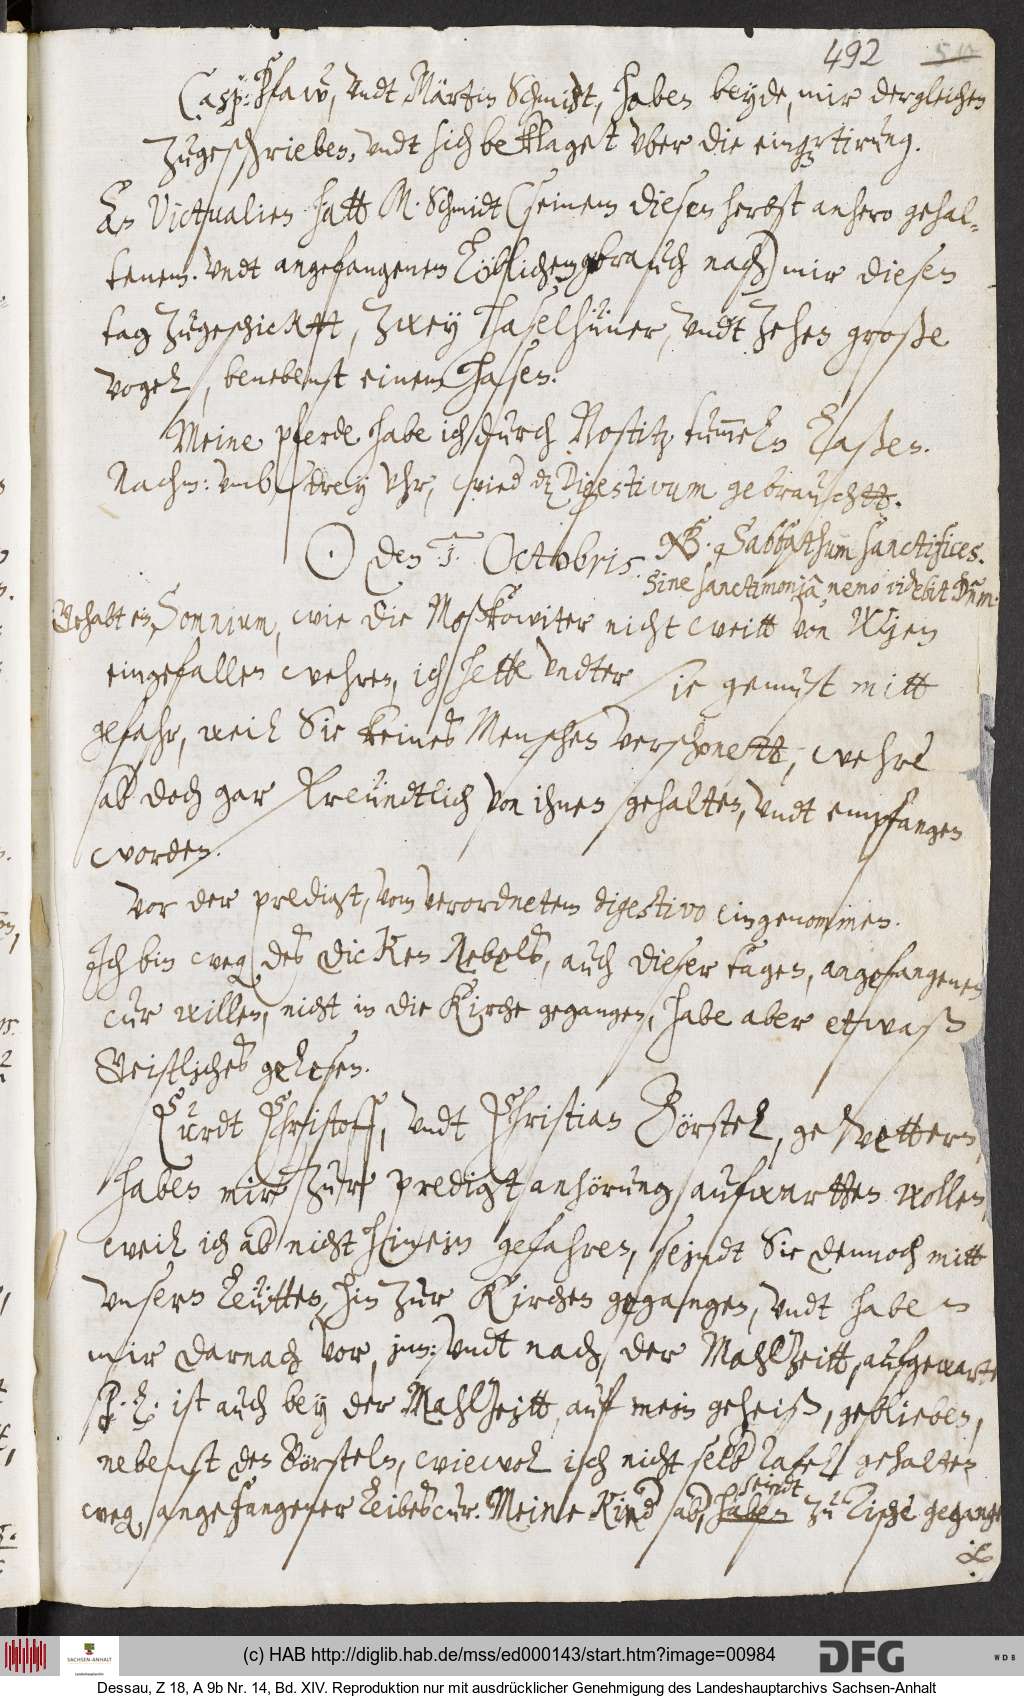 492
Casp: Pfaw, vndt Märtin Schmidt, haben beyde, mir dergleichen
zugeschrieben, vndt sich beklaget vber die einquartirung.
An Victualien hatt M. Schmidt (seinem diesen herbst anhero gehal-
tenem vndt angefangenem löblichem gebrauch nach) mir diesen
tag zugeschicktt, zwey Haselhüner, vndt zehen große
vogel, benebenst einem Hasen.
Meine pferde habe ich durch Nostitz tummeln laßen.
Nachm: vmb drey vhr, wied dz Digestivum gebrauchtt.
☉ den 1. Octobris. NB. Sabbathum sanctifices.
Sine sanctimonia, nemo videbit Dnm.
Gehabt ein Somnium, wie die Moßkowiter nicht weitt von
eingefallen wehren, ich hette vndter sie gemust mitt
gefahr, weil Sie keines Menschen verschonett, wehre
ab doch gar freündtlich von ihnen gehalten, vndt empfangen
worden.
Vor der predigt, vom verordnetem digestivo eingenommen.
Ich bin weg des dicken Nebels, auch dieser tagen, angefangenen
cur willen, nicht in die Kirche gegangen, habe aber etwaß
Geistliches gelesen.
Curdt Christoff, vndt Christian Börstel, gevettern,
haben mir zur predigt anhörung aufwartten wollen,
weil ich ab nicht hinein gefahren, seindt Sie dennoch mitt
vnsern leütten, hin zur Kirchen gegangen, vndt haben
mir darnach vor, in: vndt nach, der Mahlzeitt, aufgewarte
ist auch bey der Mahlzeitt, auf mein geheiß, geblieben,
nebenst den Börsteln, wiewol ich nicht selb Tafel gehalten
seindt
weg, angefangener leibescur. Meine Kind ab, haben zu Tische gegange
(c) HAB http://diglib.hab.de/mss/ed000143/start.htm?image=00984
SACHSEN-ANHALT
DFG
WDB
Dessau, Z 18, A 9b Nr. 14, Bd. XIV. Reproduktion nur mit ausdrücklicher Genehmigung des Landeshauptarchivs Sachsen-Anhalt